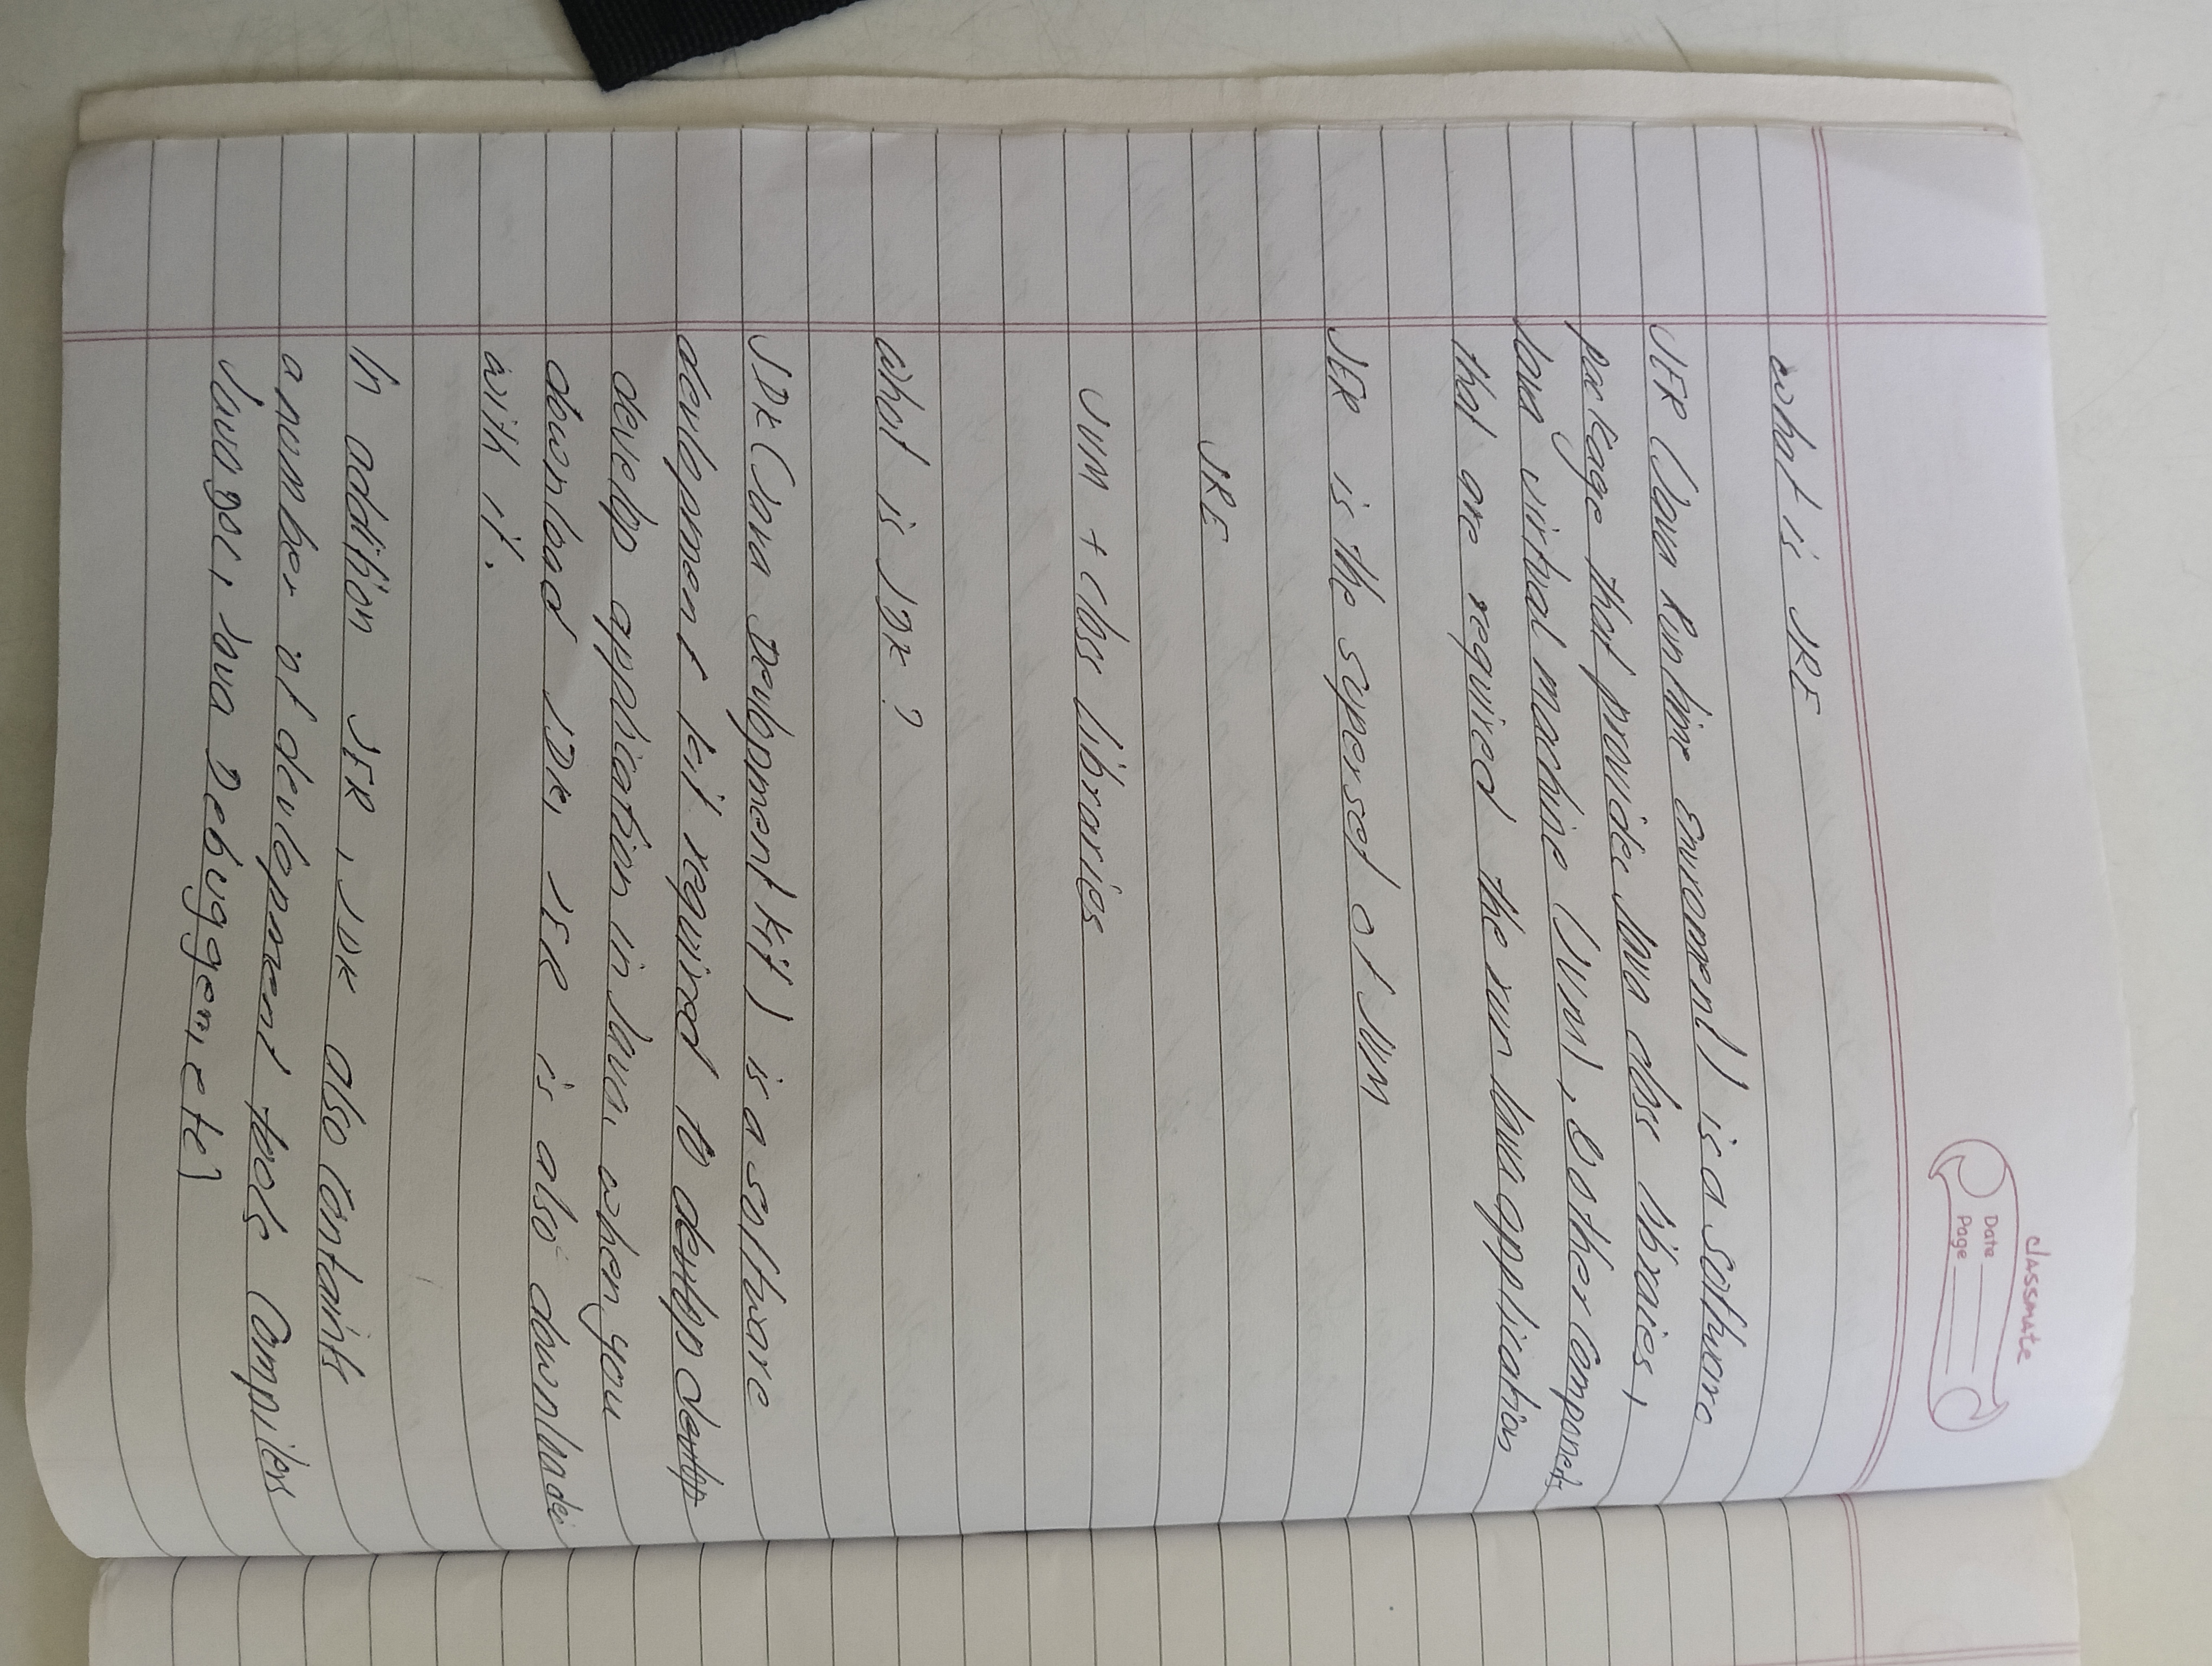 classmate
Date
Page
what is JRE
JER (Java Runtime Enviroment) is a sotware
package that provides Java class libraies,
Java virtual machine (Jvm), & other Components
that are required the run Java application
JER is the superset of JVM
JRE
JVM + Class libraries
what is JDK?
JDK (Java Development Kit) is a software
development kit required to develop develop
develop application in Java. when you
download JDK, JER is also downloaded
with it.
In addition JER, JDK also contains
a number of development tools (ompilers
Java DOC, Java Debugger, etc)